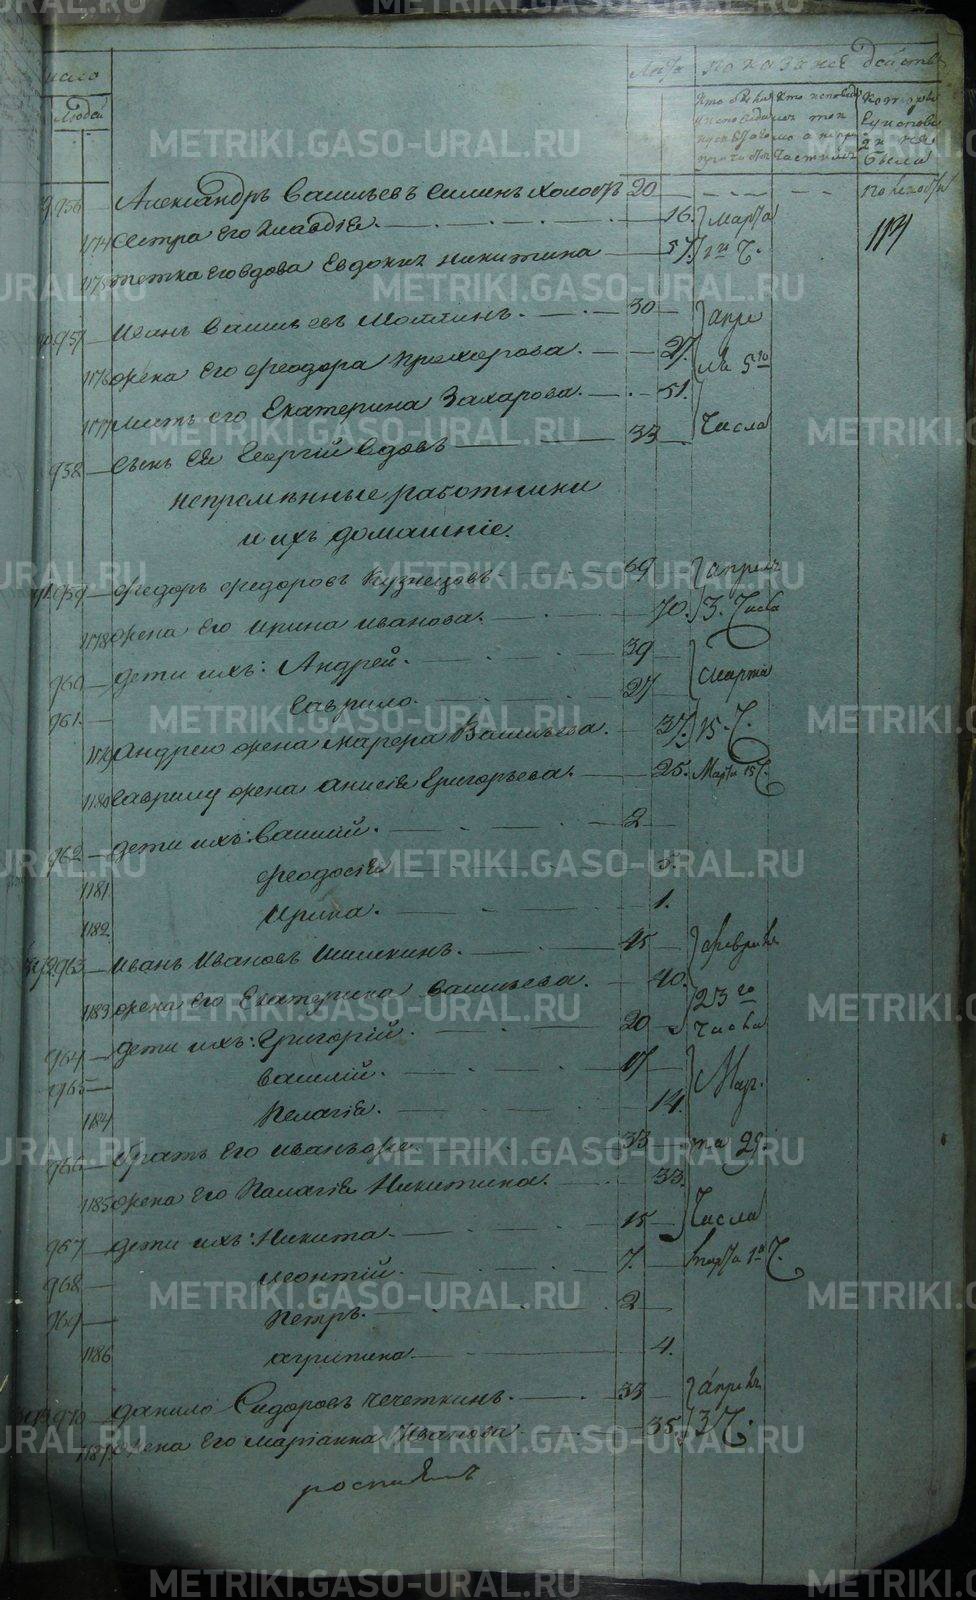 Число Лѣта показанiе дѣйств
Людей
Кто былъ Кто исповѣд Которые
у исповѣди
не
были
956 Александръ Васильевъ 20 — — — —
114
1174 Сестра его Клавдiя. 16. Марта
1175 тетка его вдова Евдокия Никитина 57. 1го Ч.
957 Иванъ Васильевъ 30 апре
1176 жена его Феодора Прохорова. 27. ля 5го
1177 мать его Екатерина Захарова. 51. Числа
958 Сынъ ея Георгiй вдовъ 33
непремѣнные работники
и ихъ домашнiе.
959 Федоръ Федоровъ Кузнецовъ 69 апреля
1178 жена его Ирина Иванова. 70. 3. Числа
960 дети ихъ: Андрей. 39 Марта
961. Гаврило. 27
1179 Андрею жена Марфа Васильева. 37. 15. Ч.
1180 Гаврилу жена Анисiя Григорьева. 25. Марта 15 Ч.
962 дети ихъ: Василiй. 2
1181 Феодосiя 5.
1182 Ирина. 1.
963 Иванъ Ивановъ Шишкинъ. 45 февраля
1183 жена его Екатерина Васильева. 40. 23го
964 дети ихъ: Григорiй. 20 числа
965 Василiй. 17 Мар.
1184 Пелагiя. 14.
966 братъ его Иванъ же 33 та 25.
1185 жена его Палагiя Никитина. 33.
967 дети ихъ: Никита. 15 Числа
968 Леонтiй. 7. марта 1го Ч.
969 Петръ. 2
1186 агрипина. 4.
970 данило Сидоровъ Чечеткинъ. 33 апреля
1187 жена его Марiанна Иванова 35. 3 Ч.
METRIKI.GASO-URAL.RU